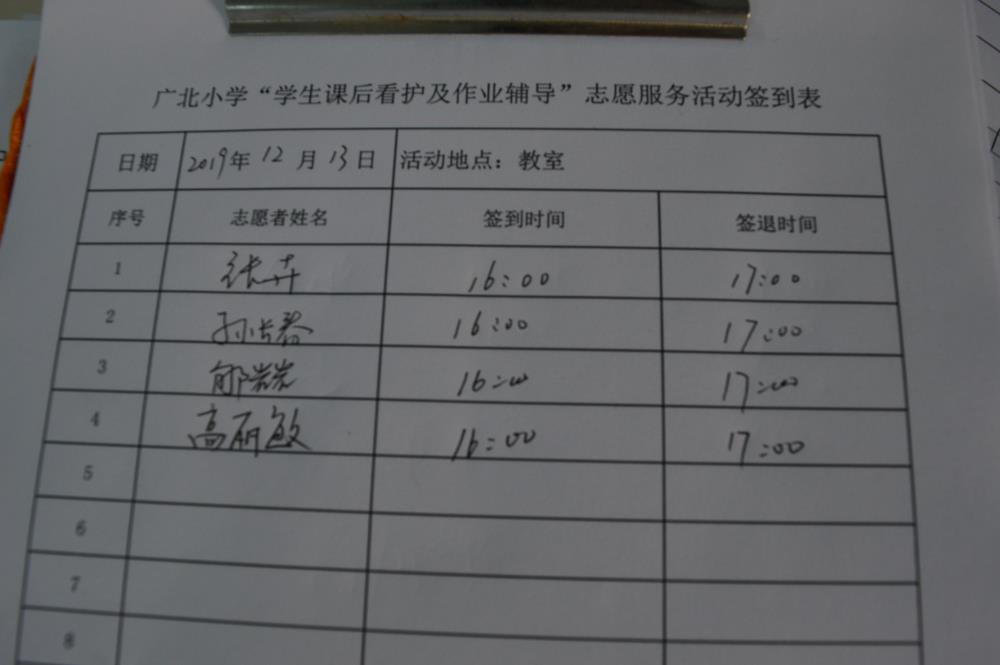 广北小学“学生课后看护及作业辅导”志愿服务活动签到表
日期 2019年 12 月 13日 活动地点：教室
序号 志愿者姓名 签到时间 签退时间
1 张卉 16:00 17:00
2 孙长春 16:00 17:00
3 郇岩岩 16:00 17:00
4 高丽敏 16:00 17:00
5
6
7
8